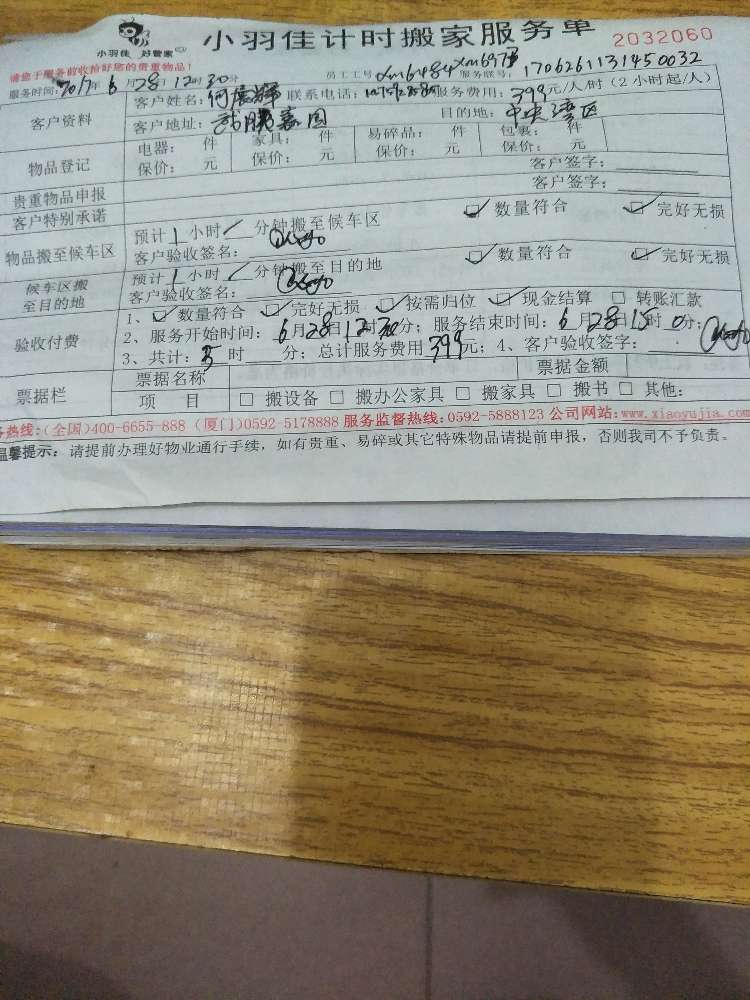 小羽佳 好管家
小羽佳计时搬家服务单 2032060
请您于服务前收拾好您的贵重物品!
服务时间:2017年6月28日12时30分 员工工号 xm6484 服务联号: 1706261131450032
客户资料
客户姓名: 联系电话: 服务费用:399元/人/时(2小时起/人)
客户地址: 目的地:中央湾区
物品登记
电器: 件 家具: 件 易碎品: 件 包裹: 件
保价: 元 保价: 元 保价: 元 保价: 元
贵重物品申报 客户签字:
客户特别承诺 客户签字:
物品搬至候车区
预计1小时 分钟搬至候车区 ☑数量符合 ☑完好无损
客户验收签名:
候车区搬至目的地
预计1小时 分钟搬至目的地 ☑数量符合 ☑完好无损
客户验收签名:
验收付费
1、☑数量符合 ☑完好无损 ☑按需归位 ☑现金结算 □转账汇款
2、服务开始时间:6月28日12时30分;服务结束时间:6月28日15时0分;
3、共计: 时 分;总计服务费用399元;4、客户验收签字:
票据栏
票据名称 票据金额
项 目 □搬设备 □搬办公家具 □搬家具 □搬书 □其他:
务热线:(全国)400-6655-888 (厦门)0592-5178888 服务监督热线:0592-5888123 公司网站:www.xiaoyujia.com
温馨提示:请提前办理好物业通行手续,如有贵重、易碎或其它特殊物品请提前申报,否则我司不予负责。